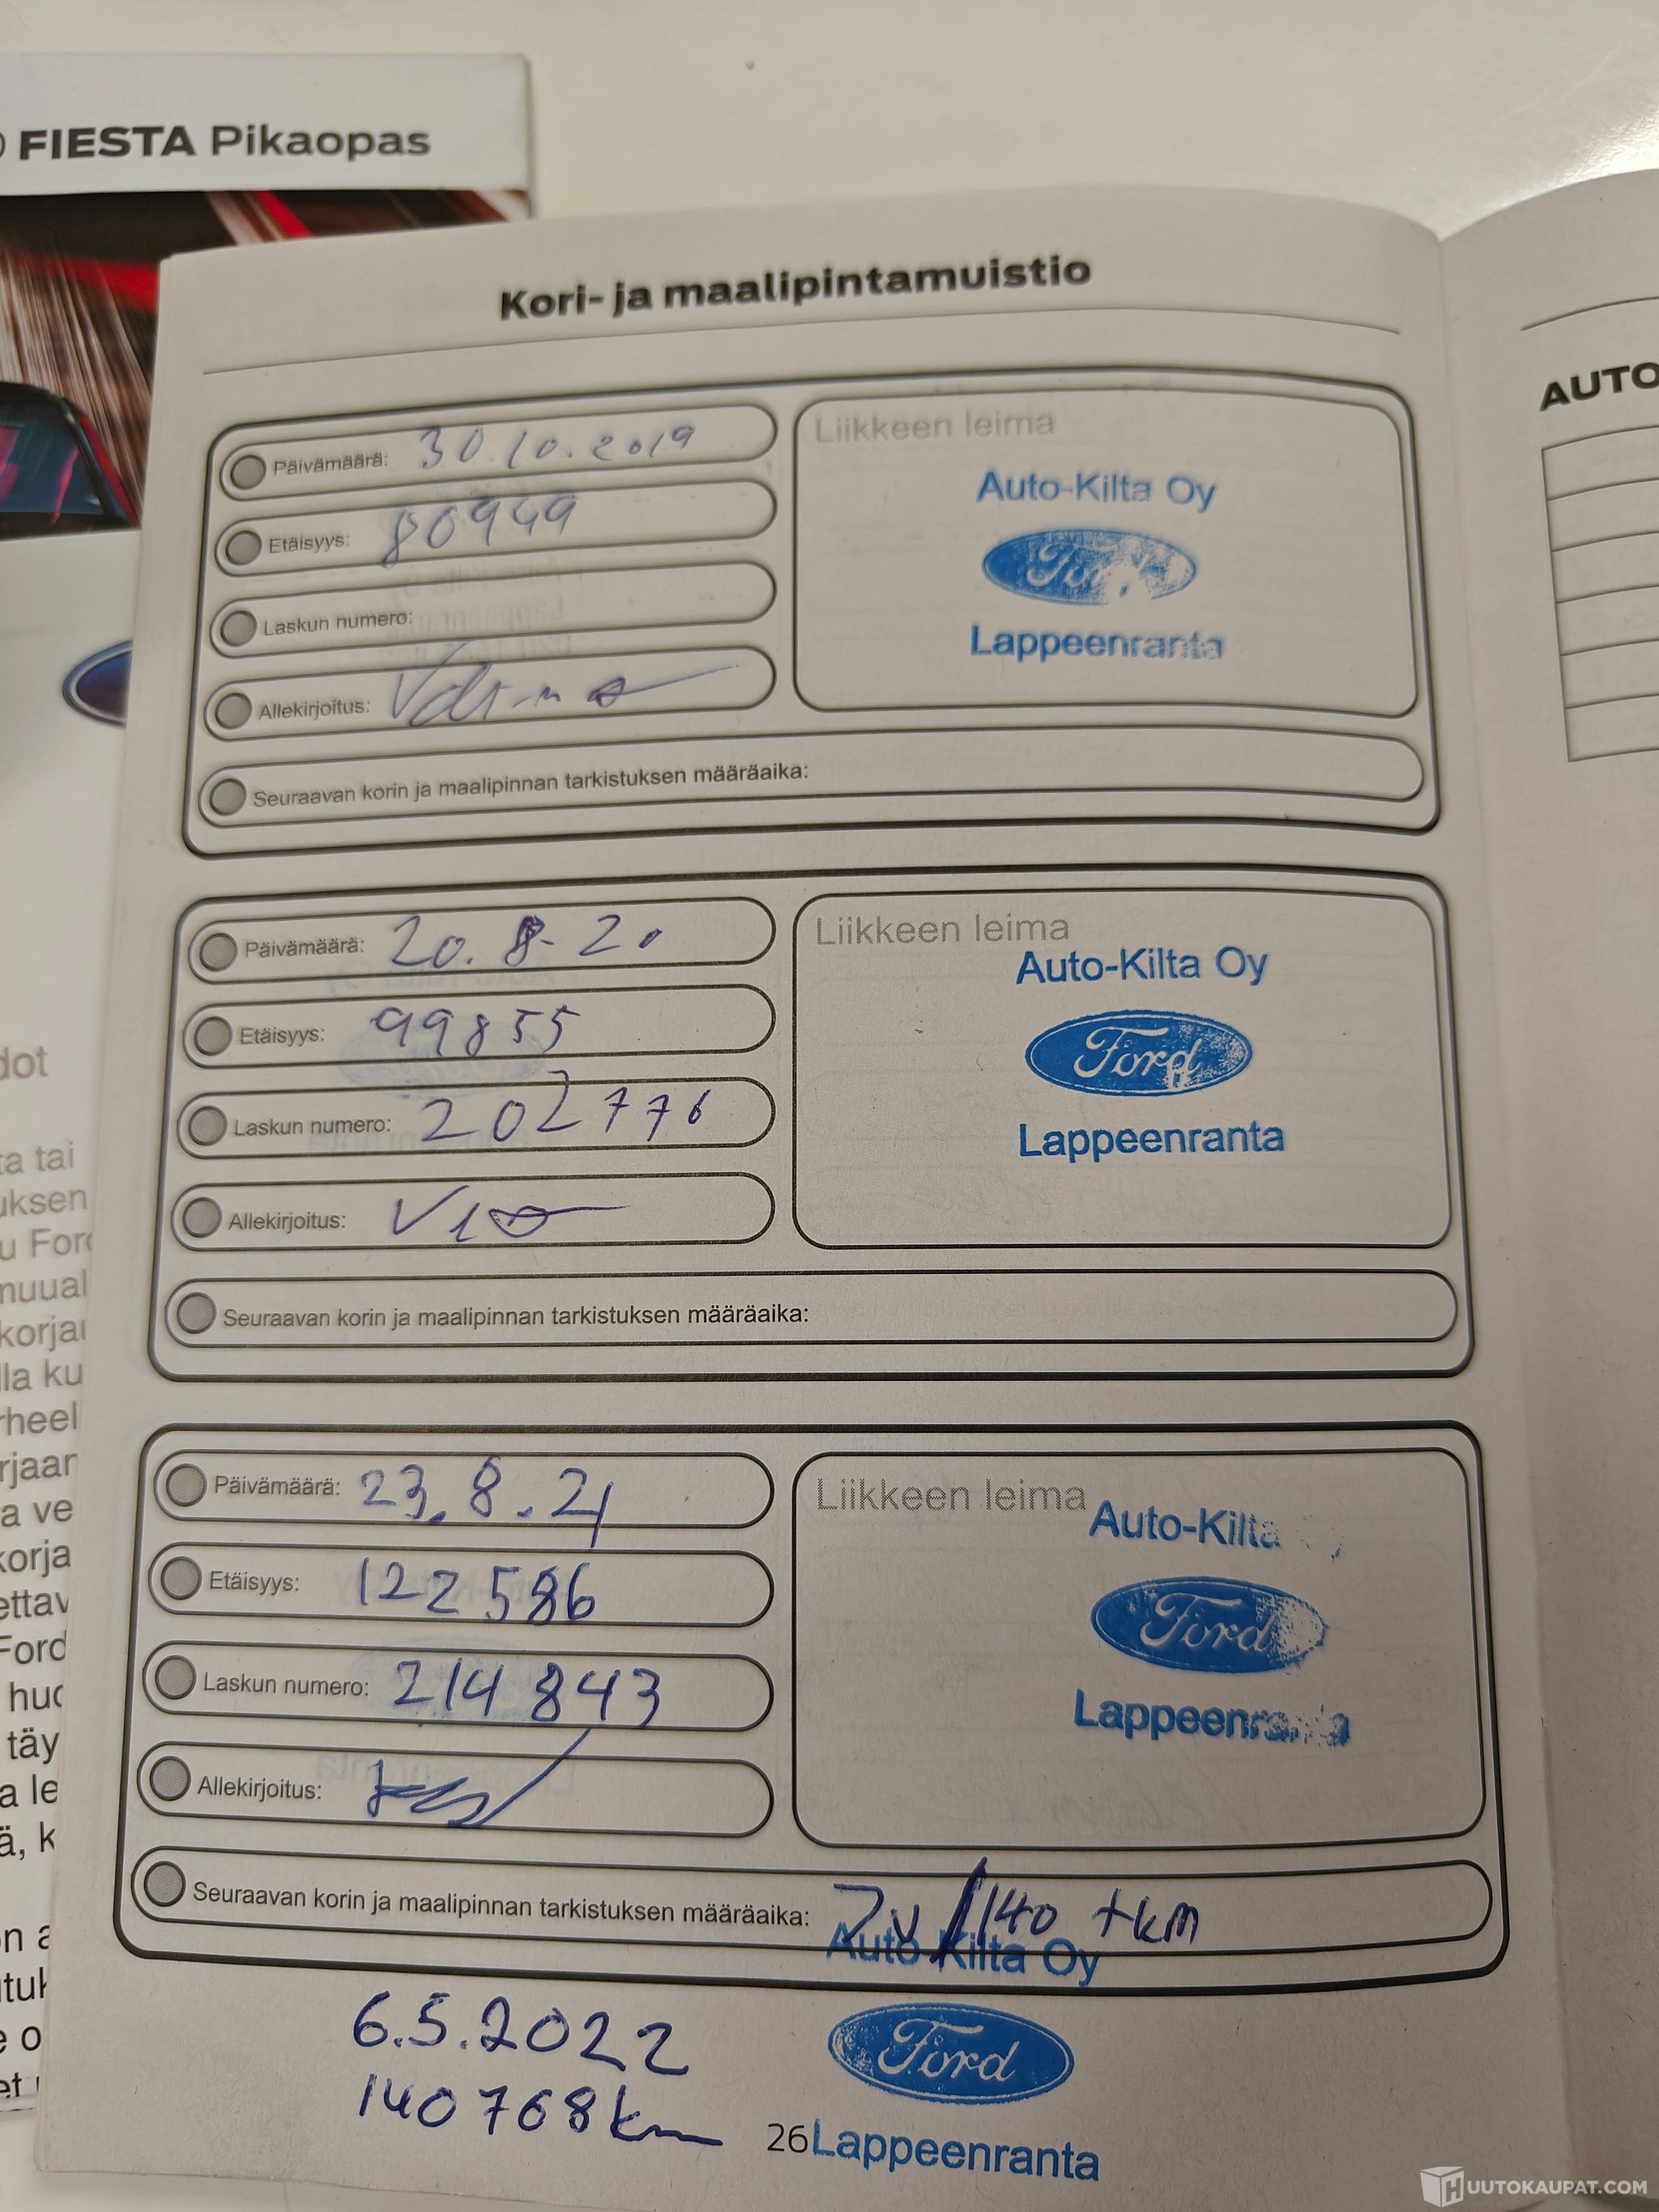 FIESTA Pikaopas
Kori- ja maalipintamuistio
Päivämäärä: 30.10.2019
Etäisyys: 80949
Laskun numero:
Allekirjoitus:
Liikkeen leima
Auto-Kilta Oy
Ford
Lappeenranta
Seuraavan korin ja maalipinnan tarkistuksen määräaika:
Päivämäärä: 20.8.20
Etäisyys: 99855
Laskun numero: 202776
Allekirjoitus:
Liikkeen leima
Auto-Kilta Oy
Ford
Lappeenranta
Seuraavan korin ja maalipinnan tarkistuksen määräaika:
Päivämäärä: 23.8.21
Etäisyys: 122586
Laskun numero: 214843
Allekirjoitus:
Liikkeen leima
Auto-Kilta
Ford
Lappeenranta
Seuraavan korin ja maalipinnan tarkistuksen määräaika: 2v/140 tkm
Auto Kilta Oy
Ford
Lappeenranta
6.5.2022
140768km
26
AUTO
dot
ta tai
uksen
u Ford
muual
korjau
lla ku
rheel
rjaan
a ve
korja
ettav
Ford
täy
a le
ä, k
HUUTOKAUPAT.COM